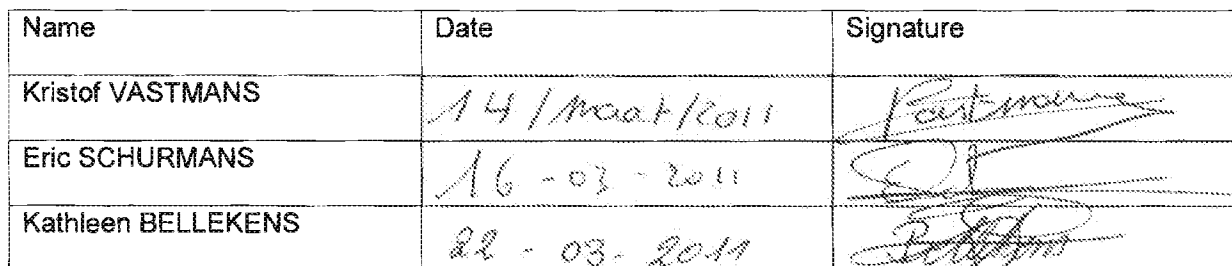 Name Date Signature
Kristof VASTMANS 14/Maart/2011 Vastmans
Eric SCHURMANS 16-03-2011
Kathleen BELLEKENS 22-03-2011